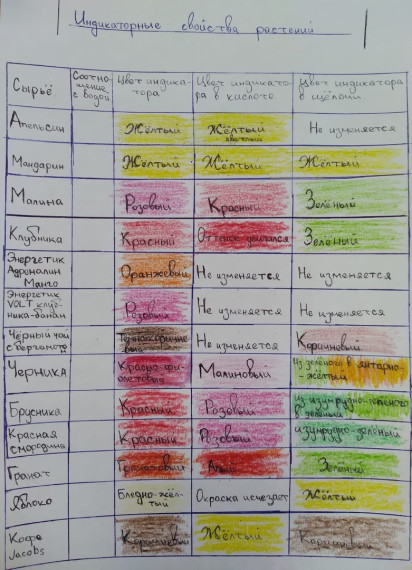 Индикаторные свойства растений
Сырьё
Соотно-
шение
с водой
Цвет индика-
тора
Цвет индикато-
ра в кислоте
Цвет индикатора
в щёлочи
Апельсин
Жёлтый
Жёлтый
Не изменяется
Мандарин
Жёлтый
Жёлтый
Жёлтый
Малина
Розовый
Красный
Зелёный
Клубника
Красный
Оттенок
Зелёный
Энергетик
Адреналин
Манго
Оранжевый
Не изменяется
Не изменяется
Энергетик
VOLT клуб-
ника-банан
Розовый
Не изменяется
Не изменяется
Чёрный чай
с бергамотом
Не изменяется
Коричневый
Черника
Красно-фи-
олетовый
Малиновый
Из зелёного в янтарно-
жёлтый
Брусника
Красный
Розовый
Из изумрудно-зелёного
в зелёный
Красная
смородина
Красный
Розовый
изумрудно-зелёный
Гранат
Гранатовый
Алый
Зелёный
Яблоко
Бледно-жёл-
тый
Окраска исчезает
Жёлтый
Кофе
Jacobs
Коричневый
Жёлтый
Коричневый